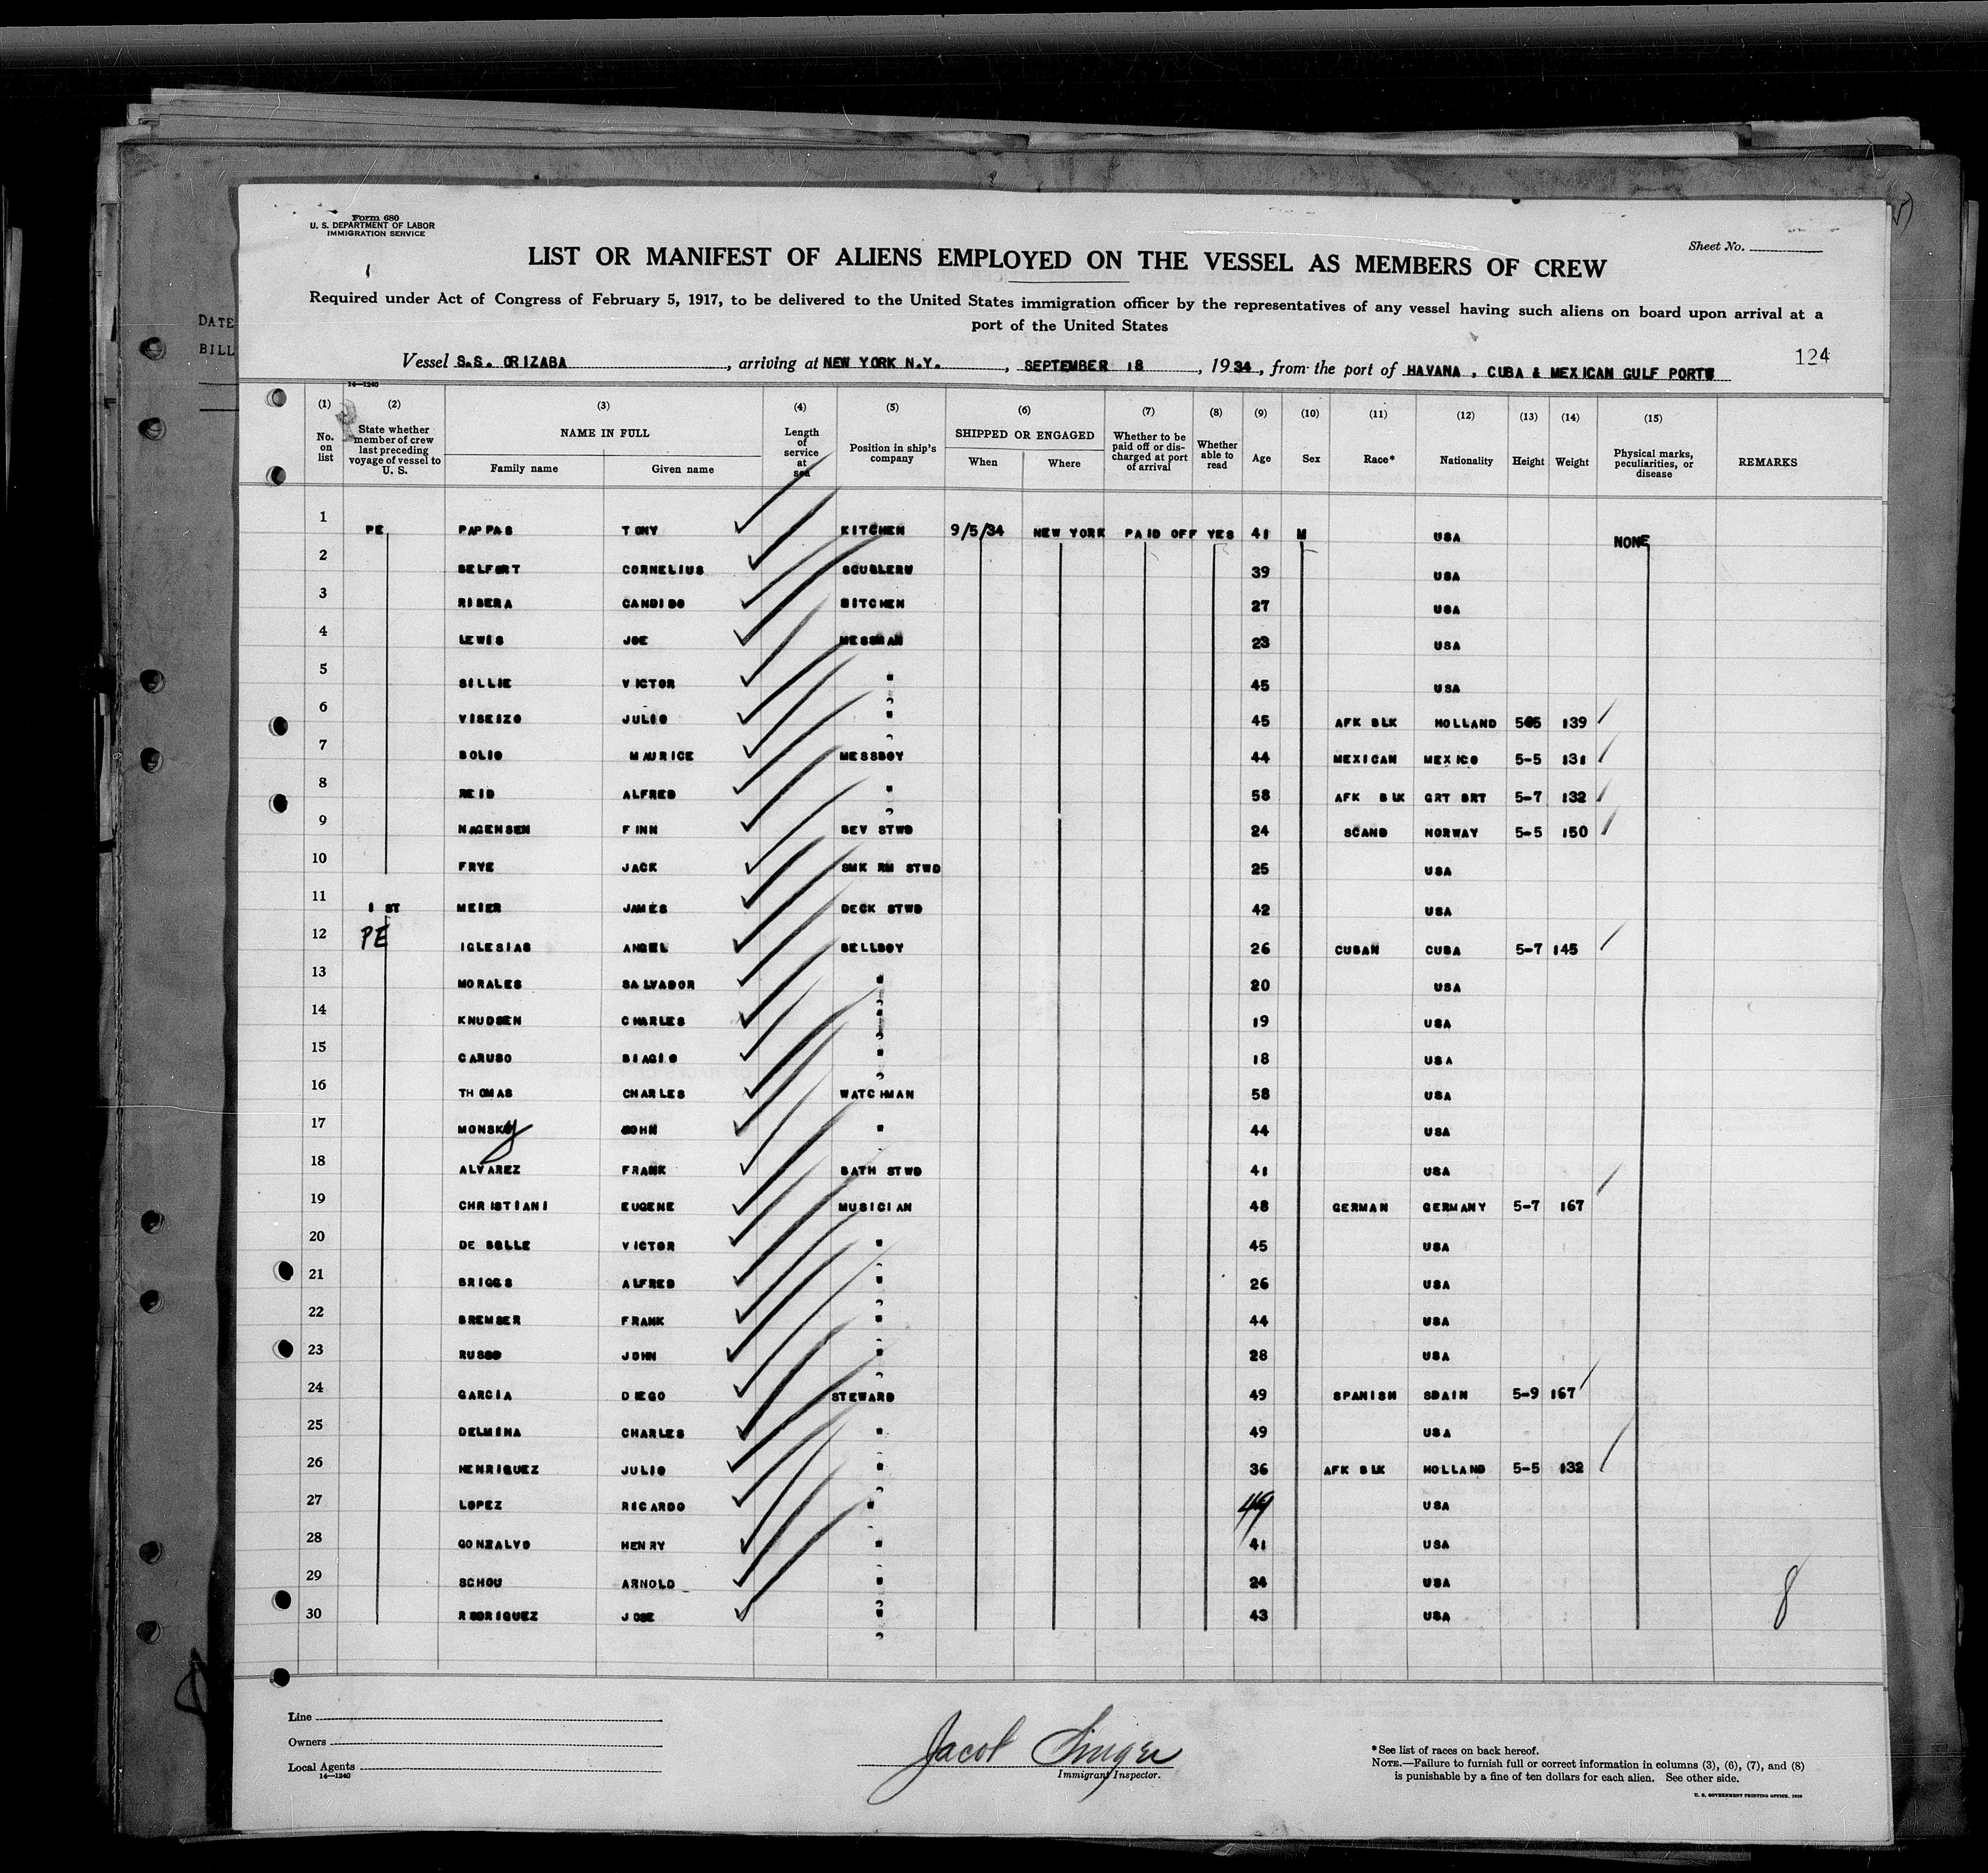 Form 680
U. S. DEPARTMENT OF LABOR
IMMIGRATION SERVICE
Sheet No.
LIST OR MANIFEST OF ALIENS EMPLOYED ON THE VESSEL AS MEMBERS OF CREW
Required under Act of Congress of February 5, 1917, to be delivered to the United States immigration officer by the representatives of any vessel having such aliens on board upon arrival at a
port of the United States
DATE
BILL
Vessel S.S. ORIZABA, arriving at NEW YORK N.Y., SEPTEMBER 18, 1934, from the port of HAVANA, CUBA & MEXICAN GULF PORTS
124
14—1240
(1) (2) (3) (4) (5) (6) (7) (8) (9) (10) (11) (12) (13) (14) (15)
No. on list State whether member of crew last preceding voyage of vessel to U. S. NAME IN FULL Family name Given name Length of service at sea Position in ship's company SHIPPED OR ENGAGED When Where Whether to be paid off or discharged at port of arrival Whether able to read Age Sex Race* Nationality Height Weight Physical marks, peculiarities, or disease REMARKS
1 PE PAPPAS TONY KITCHEN 9/5/34 NEW YORK PAID OFF YES 41 M USA NONE
2 BELFORT CORNELIUS 39 USA
3 RIBERA CANDIDO KITCHEN 27 USA
4 LEWIS JOE MESSMAN 23 USA
5 SILLIE VICTOR " 45 USA
6 VISEIZO JULIO " 45 AFK BLK HOLLAND 5-5 139
7 BOLIO MAURICE MESSBOY 44 MEXICAN MEXICO 5-5 131
8 REID ALFRED " 58 AFK BLK GRT BRT 5-7 132
9 NAGENSEN FINN BEV STWD 24 SCAND NORWAY 5-5 150
10 FRYE JACK SMK RM STWD 25 USA
11 1 ST MEIER JAMES DECK STWD 42 USA
12 PE IGLESIAS ANGEL BELLBOY 26 CUBAN CUBA 5-7 145
13 MORALES SALVADOR " 20 USA
14 KNUDSEN CHARLES " 19 USA
15 CARUSO BIAGIO " 18 USA
16 THOMAS CHARLES WATCHMAN 58 USA
17 MONSKY JOHN " 44 USA
18 ALVAREZ FRANK BATH STWD 41 USA
19 CHRISTIANI EUGENE MUSICIAN 48 GERMAN GERMANY 5-7 167
20 DE BOLLE VICTOR " 45 USA
21 BRIGGS ALFRED " 26 USA
22 BREMSER FRANK " 44 USA
23 RUSSO JOHN " 28 USA
24 GARCIA DIEGO STEWARD 49 SPANISH SPAIN 5-9 167
25 DELMINA CHARLES " 49 USA
26 HENRIQUEZ JULIO " 36 AFK BLK HOLLAND 5-5 132
27 LOPEZ RICARDO " 49 USA
28 GONZALVO HENRY " 41 USA
29 SCHOU ARNOLD " 24 USA
30 RODRIGUEZ JOSE " 43 USA
8
Line
Owners
Local Agents
14—1240
Jacob Singer
Immigrant Inspector.
*See list of races on back hereof.
NOTE.—Failure to furnish full or correct information in columns (3), (6), (7), and (8)
is punishable by a fine of ten dollars for each alien. See other side.
U. S. GOVERNMENT PRINTING OFFICE, 1929